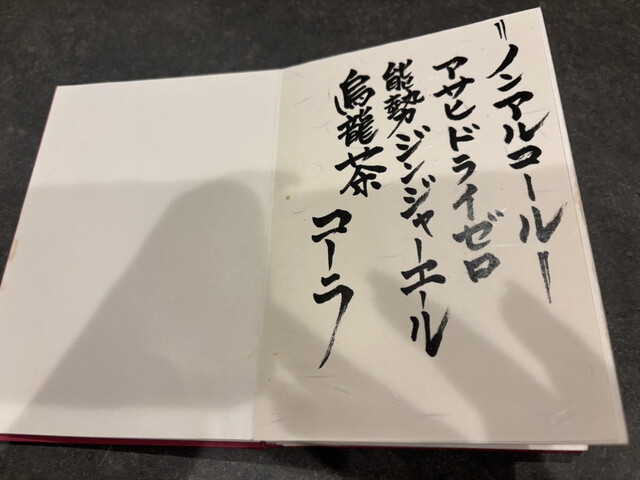 ＝ノンアルコール＝
アサヒドライゼロ
能勢ジンジャーエール
烏龍茶 コーラ